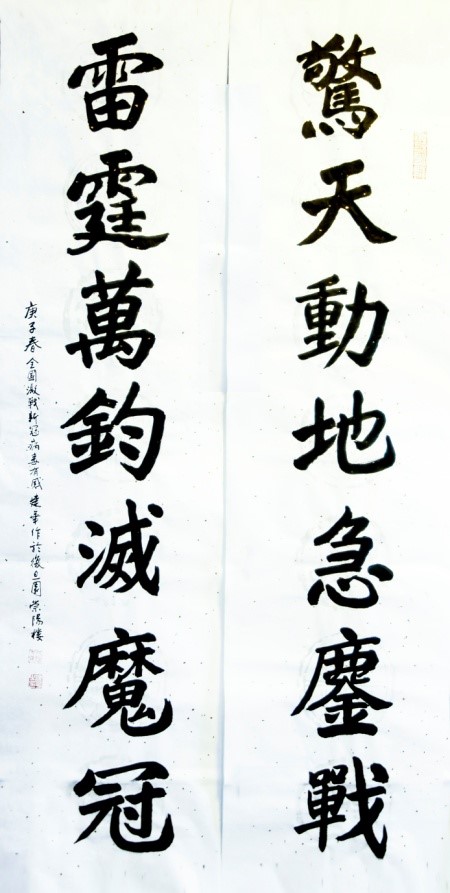 驚天動地急鏖戰
雷霆萬鈞滅魔冠
庚子春全国激戰新冠病毒有感建華作於復旦園榮陽樓